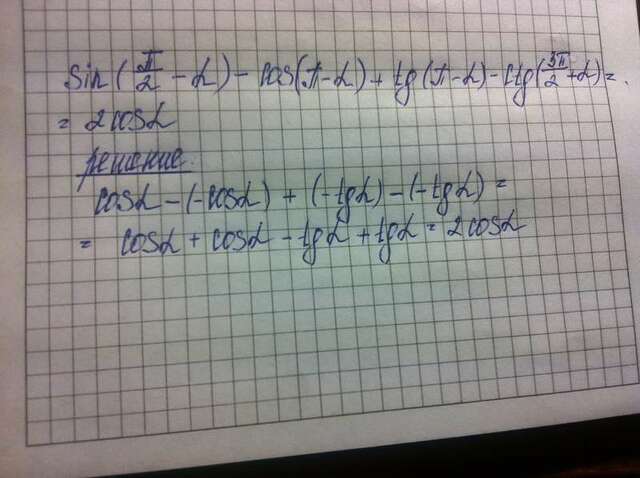 sin(π/2 - α) - cos(π-α) + tg(π-α) - ctg(3π/2 + α) =
= 2cosα
решение.
cosα - (-cosα) + (-tgα) - (-tgα) =
= cosα + cosα - tgα + tgα = 2cosα